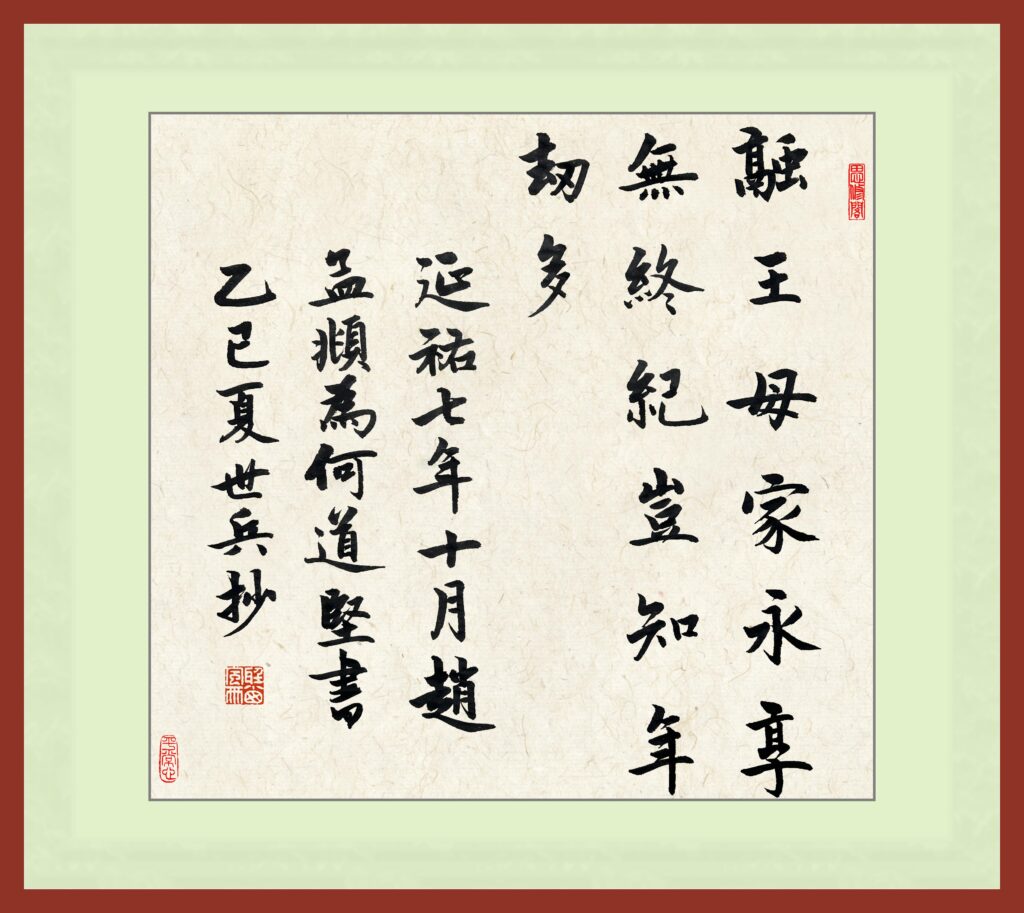 融王母家永享
無終紀豈知年
刼多
延祐七年十月趙
孟頫為何道堅書
乙巳夏世兵抄
平常心